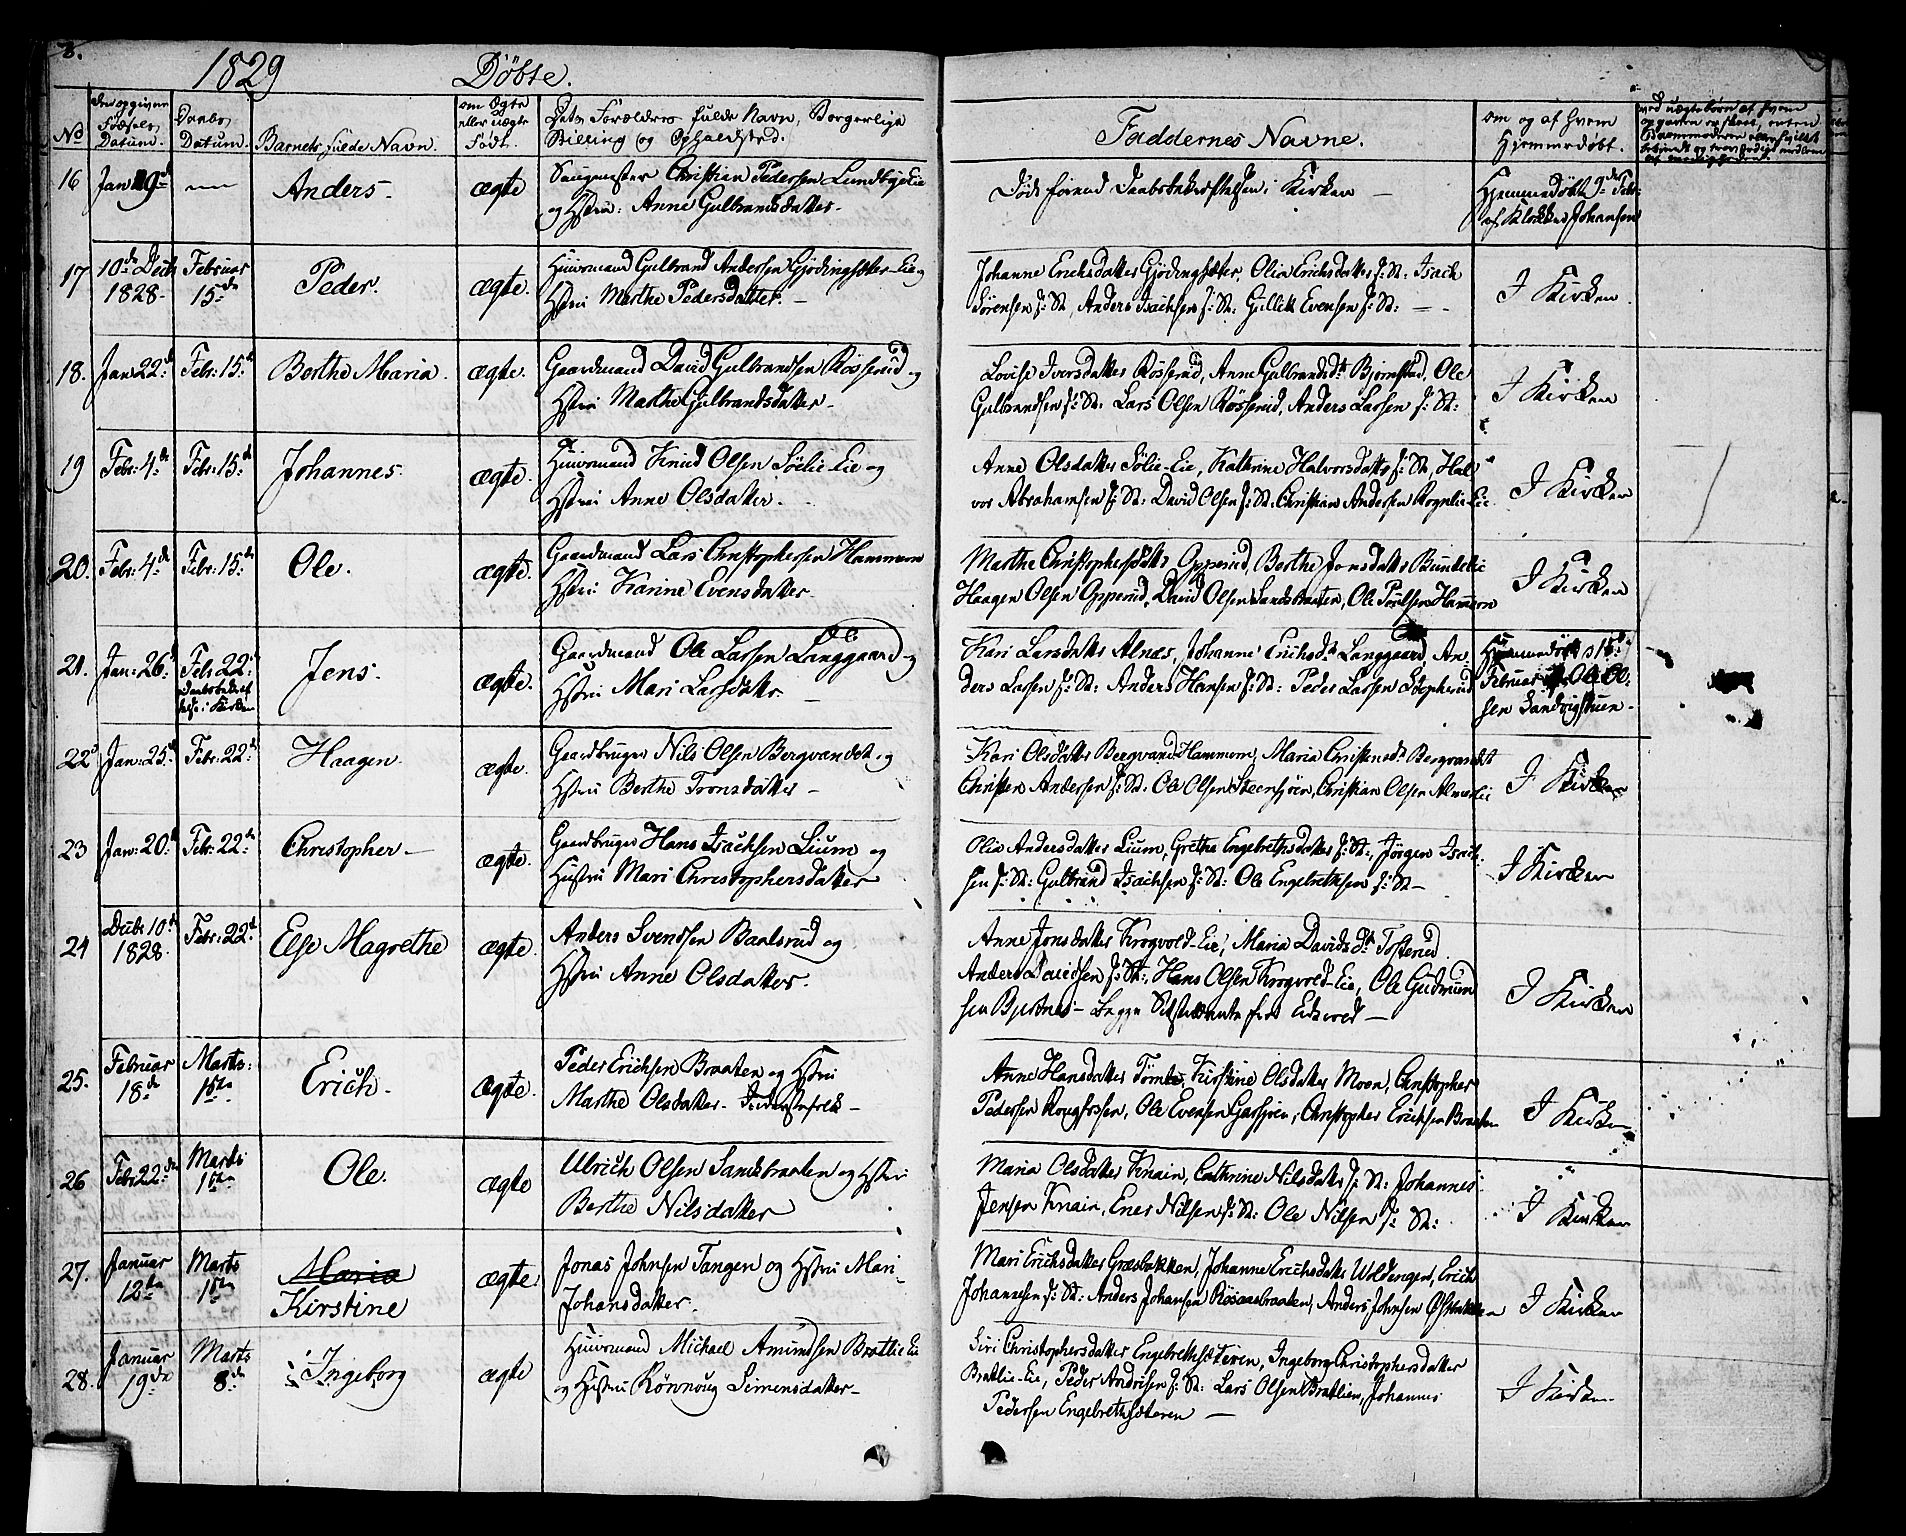 8.
1829 Döbte.
No
den opgivne Fødsels Datum.
Daabs Datum.
Barnets fulde Navn.
om Ægte eller uægte Født.
Dets Forældres fulde Navn, Borgerlige
Stilling og Opholdsted.
Faddernes Navne.
om og af hvem
Hjemmedøbt.
16 Jan 19d — Anders. ægte
Saugmester Christian Pedersen Lundbye Eie
og Hstru: Anne Gulbrandsdatter.
Døde forend Daabsbekræftelsen i Kirken —
Hjemmedøbt 9de Febr:
af Klokker Johansen
17 10de Decbr 1828. Februar 15de Peder. ægte.
Huusmand Gulbrand Andersen Gjødingsæter-Eie og
Hstru Marthe Pedersdatter. —
Johanne Erichsdatter Gjødingsæter, Olia Erichsdatter f: St: Isach
Sörensen f: St, Anders Isachsen f: St: Gullik Evensen f: St: —
I Kirken.
18. Jan: 22de Febr: 15de Berthe Maria. ægte.
Gaardmand David Gulbrandsen Rösserud og
Hstru Marthe Gulbrandsdatter —
Lovise Iversdatter Rösserud, Anne Gulbrandsdt Bjørnstad, Ole
Gulbrandsen f: St: Lars Olsen Rösserud, Anders Larsen f: St:
I Kirken
19 Febr: 4de Febr: 15de Johannes. ægte.
Huusmand Knud Olsen Sölie-Eie og
Hstru Anne Olsdatter. —
Anne Olsdatter Sölie-Eie, Katerine Halvorsdatter f: St, Hal
vor Abrahamsen f: St: David Olsen f: St: Christian Andersen Rognlie-Eie
I Kirken
20. Febr: 4de Febr: 15de Ole. ægte.
Gaardmand Lars Christophersen Hammern
Hstru Karine Evensdatter.
Marthe Christophersdatter Opperud, Berthe Jonsdatter Bundelie
Haagen Olsen Opperud, David Olsen Sandsbraaten, Ole Poulsen Hammern
I Kirken
21. Jan: 26de Febr 22de Jens. ægte.
Gaardmand Ole Larsen Langgaard og
Hstru Mari Larsdatter —
Kari Larsdatter Alnæs, Johanne Erichsdt Langgaard, An-
ders Larsen f: St: Anders Hansen f: St: Peder Larsen Stopherud
Hjemmedøbt
Februar af Ole Ol:
sen Sandvigstuen.
22d Jan: 25de Febr: 22de Haagen. ægte.
Gaardbruger Nils Olsen Bergvandet og
Hstru Berthe Tronsdatter —
Kari Olsdatter Bergvand Hammern, Maria Christensdt Bergvandet
Christen Andersen f: St: Ole Olsen Steensjøen, Christian Olsen Almerlie
I Kirken
23 Jan: 20de Febr: 22de Christopher — ægte.
Gaardbruger Hans Isachsen Lium og
Hustru Mari Christophersdatter
Olia Andersdatter Lium, Grethe Engebrethsdatter f: St:, Jörgen Isach-
sen f: St: Gulbrand Isachsen f: St: Ole Engebrethsen f: St —
I Kirken
24 Decbr 10de 1828. Febr: 22de Else Magrethe ægte.
Anders Svendsen Baalsrud og
Hstru Anne Olsdatter.
Anne Jonsdatter Krogvold-Eie, Maria Davidsdt Tosterud
Anders Davidsen f: St:, Hans Olsen Krogvold-Eie, Ole Gudmund
sen Bjertnes — Begge fra Eidsvold —
I Kirken
25. Februar 18de Marts: 1ste Erich. ægte.
Peder Erichsen Braaten og Hstru
Marthe Olsdatter.
Anne Hansdatter Tömte, Kirstine Olsdatter Moen, Christopher
Pedersen Rougfossen, Ole Evensen Garsjøen, Christopher Erichsen Braaten
I Kirken
26 Febr 22de Marts 1ste Ole. ægte
Ulrich Olsen Sandsbraaten og Hstru
Berthe Nilsdatter
Maria Olsdatter Knain, Cathrine Nilsdatter f: St: Johannes
Jensen Knain, Enes Nilsen f: St: Ole Nilsen f: St:
I Kirken
27. Januar 12te Marts 1ste Maria Kirstine ægte.
Jonas Johnsen Tangen og Hstru Mari
Johansdatter.
Mari Erichsdatter Græsbakken, Johanne Erichsdatter Woldengen, Erich
Johannesen f: St: Anders Johansen Rosaasbraaten, Anders Johnsen Østbakken
I Kirken
28. Januar 19de Marts 8de Ingeborg ægte
Huusmand Michael Amundsen Bratlie Eie
og Hustru Rönnoug Simensdatter —
Siri Christophersdatter Engebrethsæteren, Ingeborg Christophersdatter
Bratlie-Eie, Peder Andersen f: St: Lars Olsen Bratlien, Johannes
Pedersen Engebrethsæteren —
I Kirken